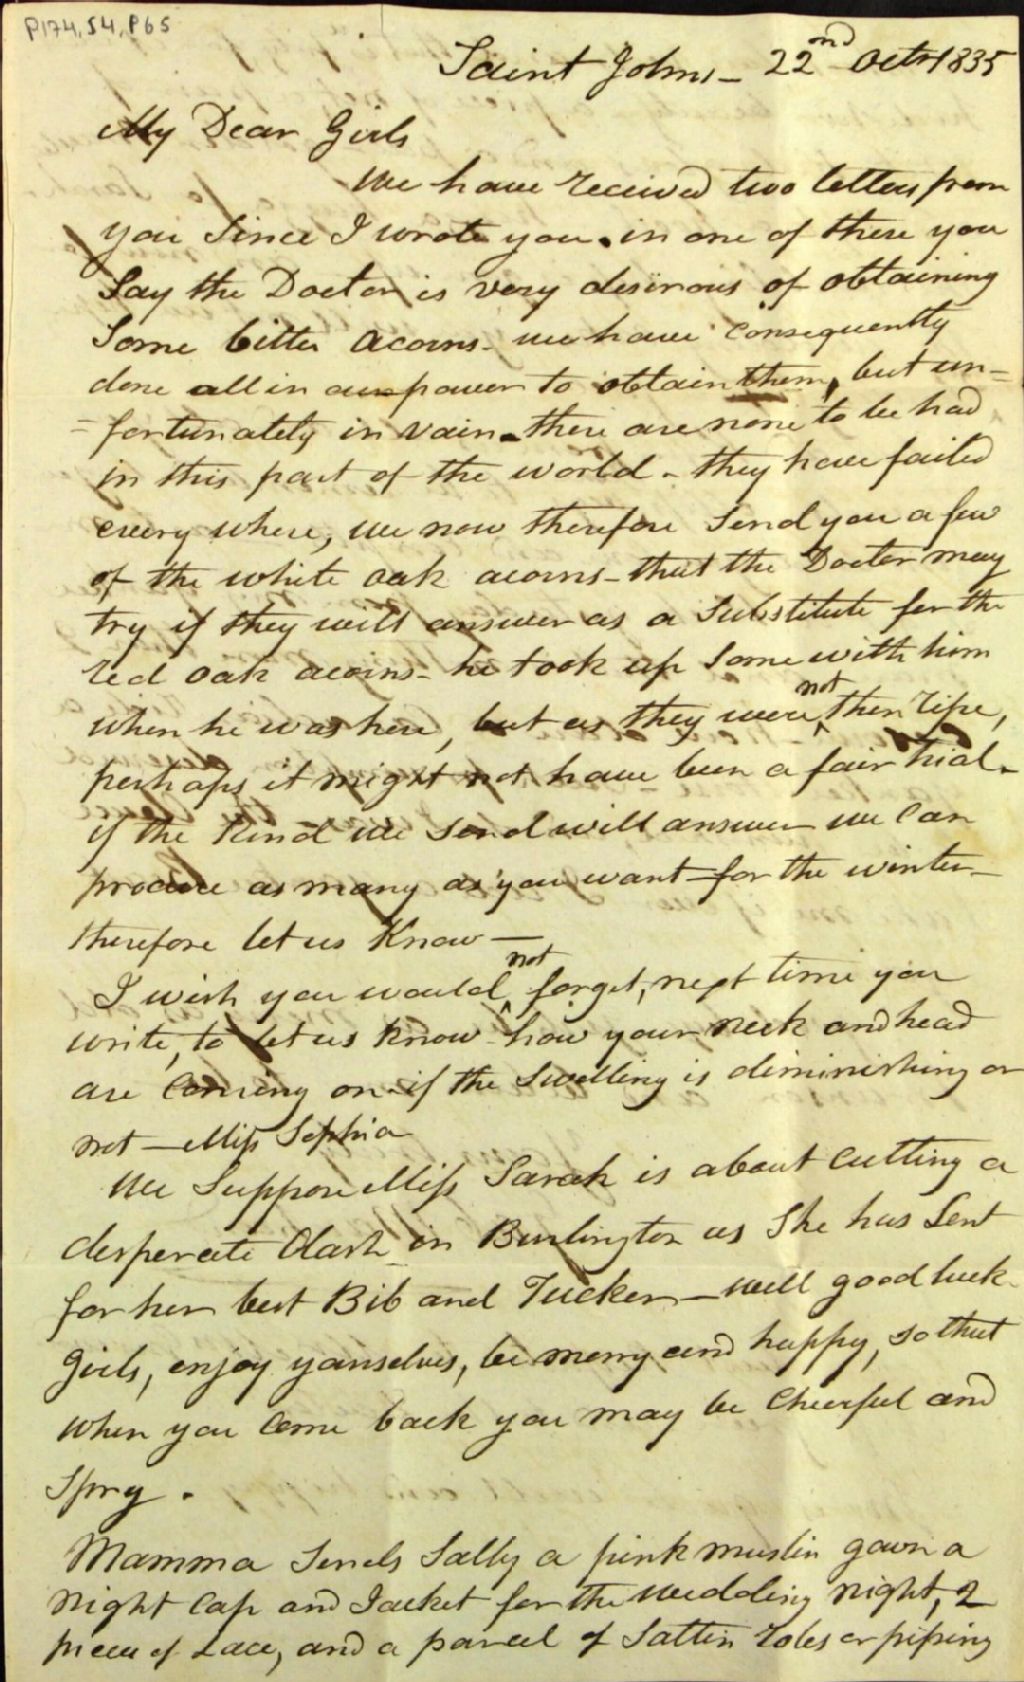 P174, S4, P65
Saint Johns - 22nd Octr 1835
My Dear Girls
We have received two letters from
you Since I wrote you. in one of these you
Say the Doctor is very desirous of obtaining
Some bitter acorns - we have consequently
done all in our power to obtain them, but un=
=fortunately in vain. there are none to be had
in this part of the world - they have failed
every where, we now therefore Send you a few
of the white oak acorns - that the Doctor may
try if they will answer as a Substitute for the
red oak acorns - he took up Some with him
when he was here, but as they were not then ripe,
perhaps it might not have been a fair trial.
if the Kind we send will answer we can
procure as many as you want for the winter -
therefore let us Know —
I wish you would not forget, next time you
write, to let us Know how your neck and head
are coming on - if the Swelling is diminishing or
not — Miss Sophia
We Suppose Miss Sarah is about cutting a
desperate dash in Burlington as She has Sent
for her best Bib and Tucker - well good luck
girls, enjoy yourselves, be merry and happy, so that
when you come back you may be cheerful and
Spry.
Mamma Sends Sally a pink muslin gown a
night cap and Jacket for the wedding night, 2
pieces of Lace, and a parcel of Sattin roles or piping